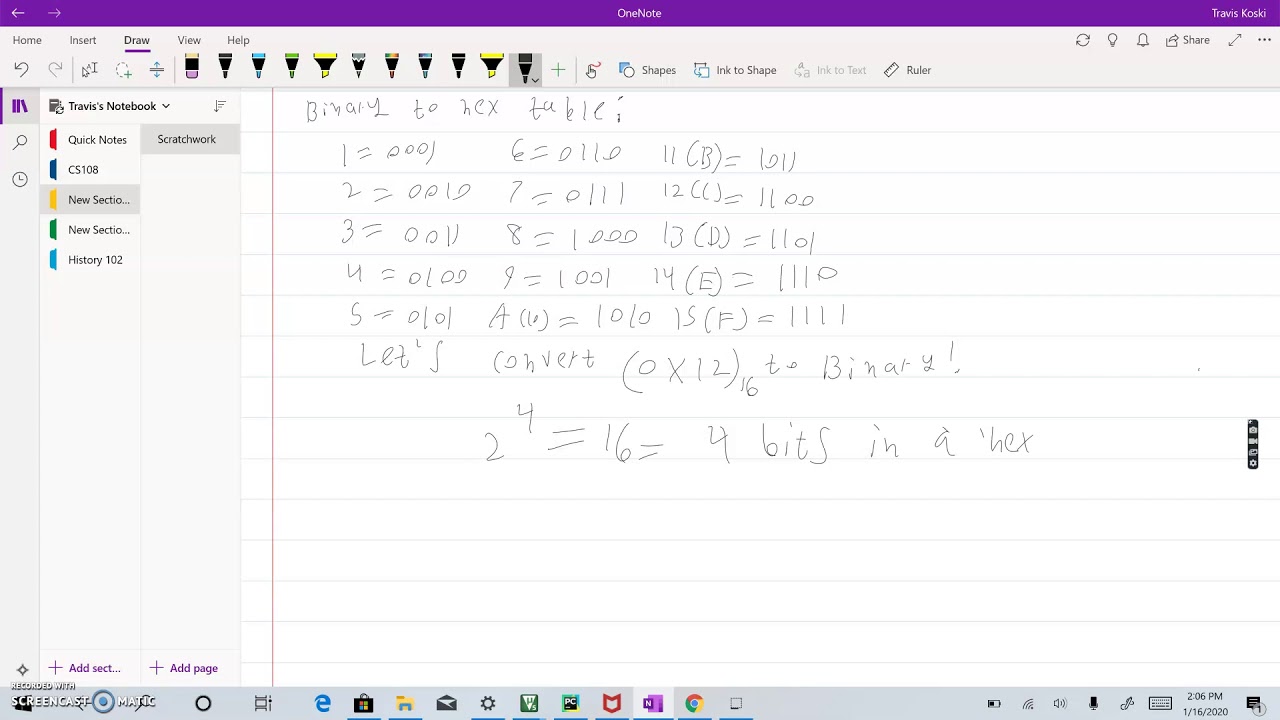 OneNote
Travis Koski
Home Insert Draw View Help
Share
Shapes Ink to Shape Ink to Text Ruler
Travis's Notebook
Quick Notes
CS108
New Sectio...
New Sectio...
History 102
Scratchwork
Binary to hex table:
1 = 0001 6 = 0110 11 (B) = 1011
2 = 0010 7 = 0111 12 (C) = 1100
3 = 0011 8 = 1000 13 (D) = 1101
4 = 0100 9 = 1001 14 (E) = 1110
5 = 0101 A (10) = 1010 15 (F) = 1111
Let's convert (0x12)₁₆ to Binary!
2⁴ = 16 = 4 bits in a hex
+ Add sect... + Add page
RECORDED WITH
SCREENCAST MATIC
2:06 PM
1/16/2020
1